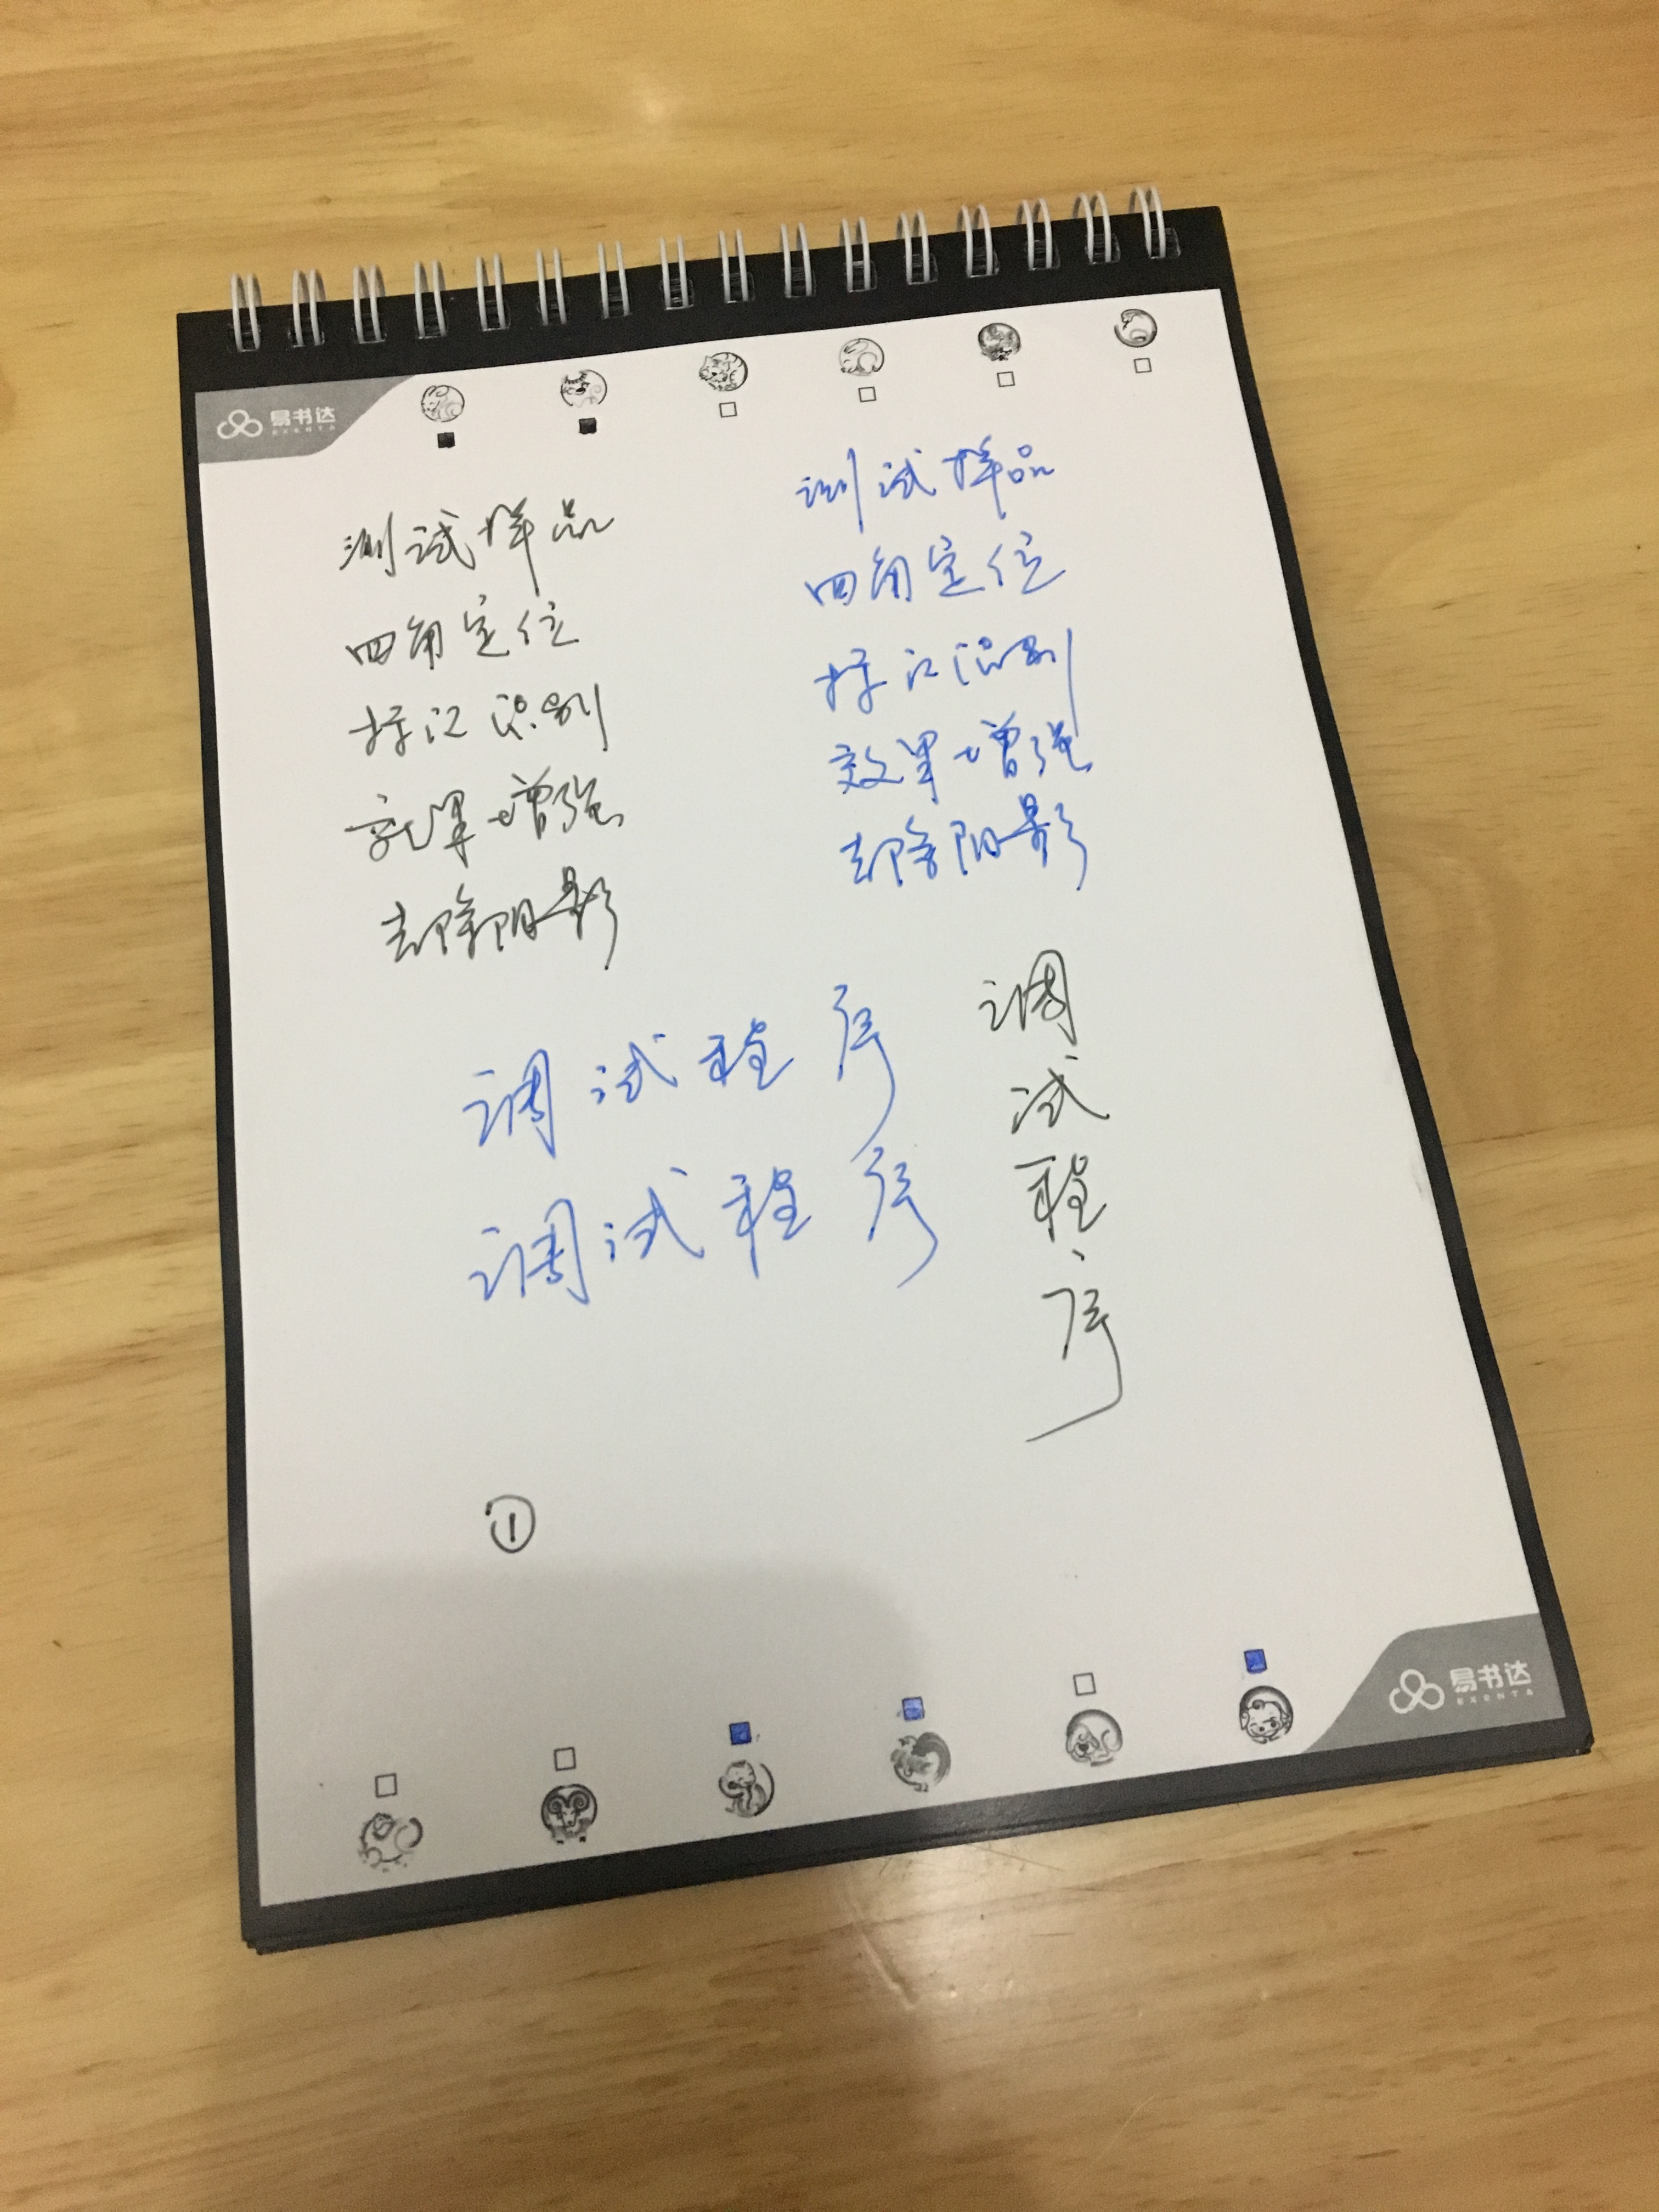 易书达
EXENTA
测试样品
四角定位
标记识别
效果增强
去除阴影
测试样品
四角定位
标记识别
效果增强
去除阴影
调试程序
调试程序
调
试
程
序
①
易书达
EXENTA